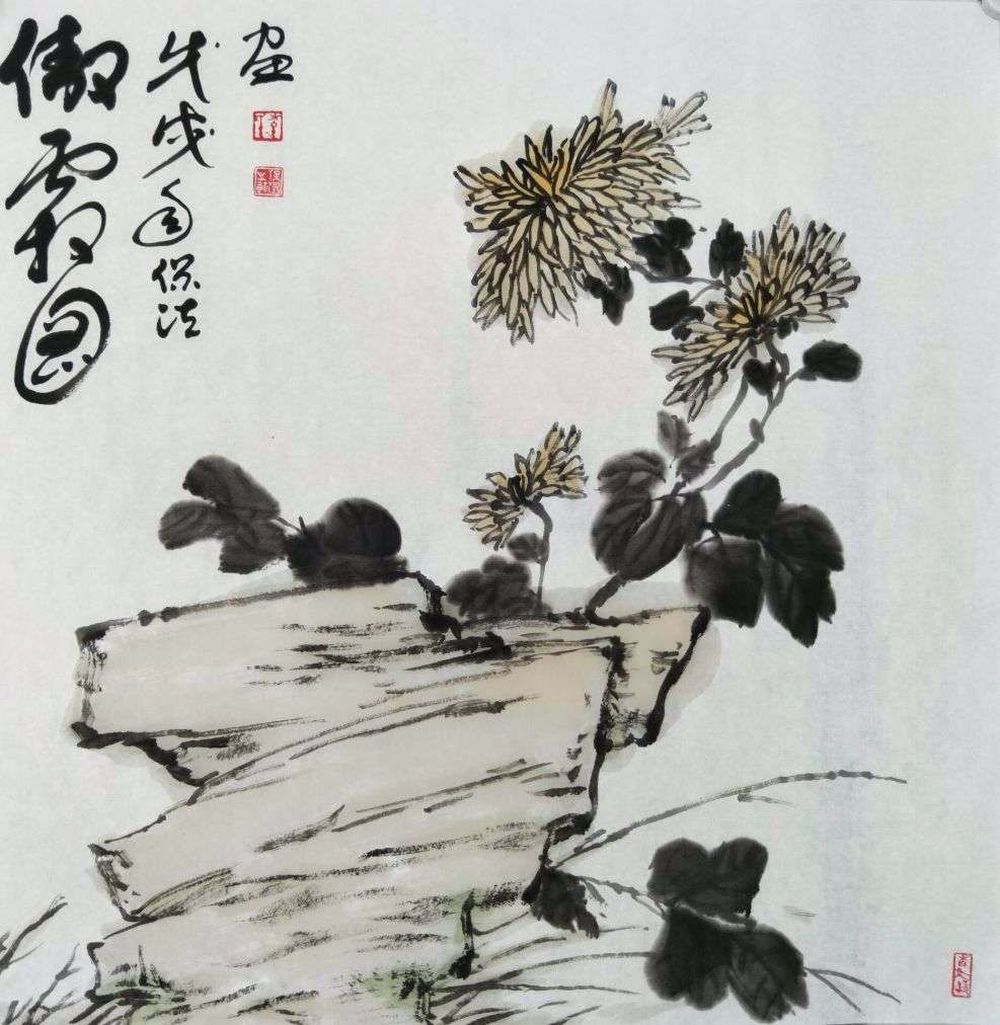 傲霜图
戊戌年保法
画